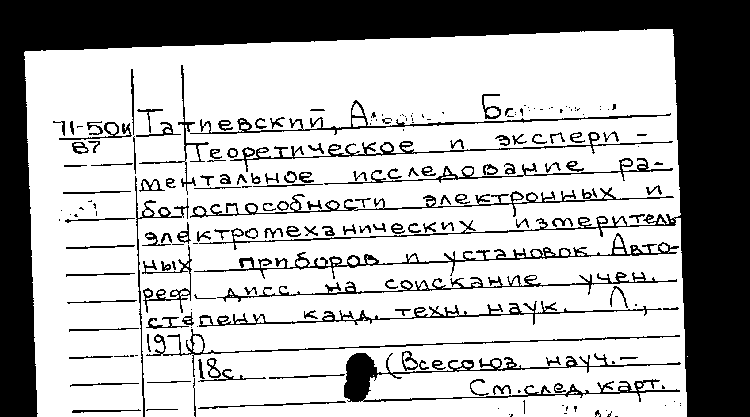 71-50к Татиевский,
87 Теоретическое и экспери-
ментальное исследование ра-
ботоспособности электронных и
электромеханических измеритель
ных приборов и установок. Авто-
реф. дисс. на соискание учен.
степени канд. техн. наук. Л.,
1970.
18с. (Всесоюз. науч.-
См. след. карт.